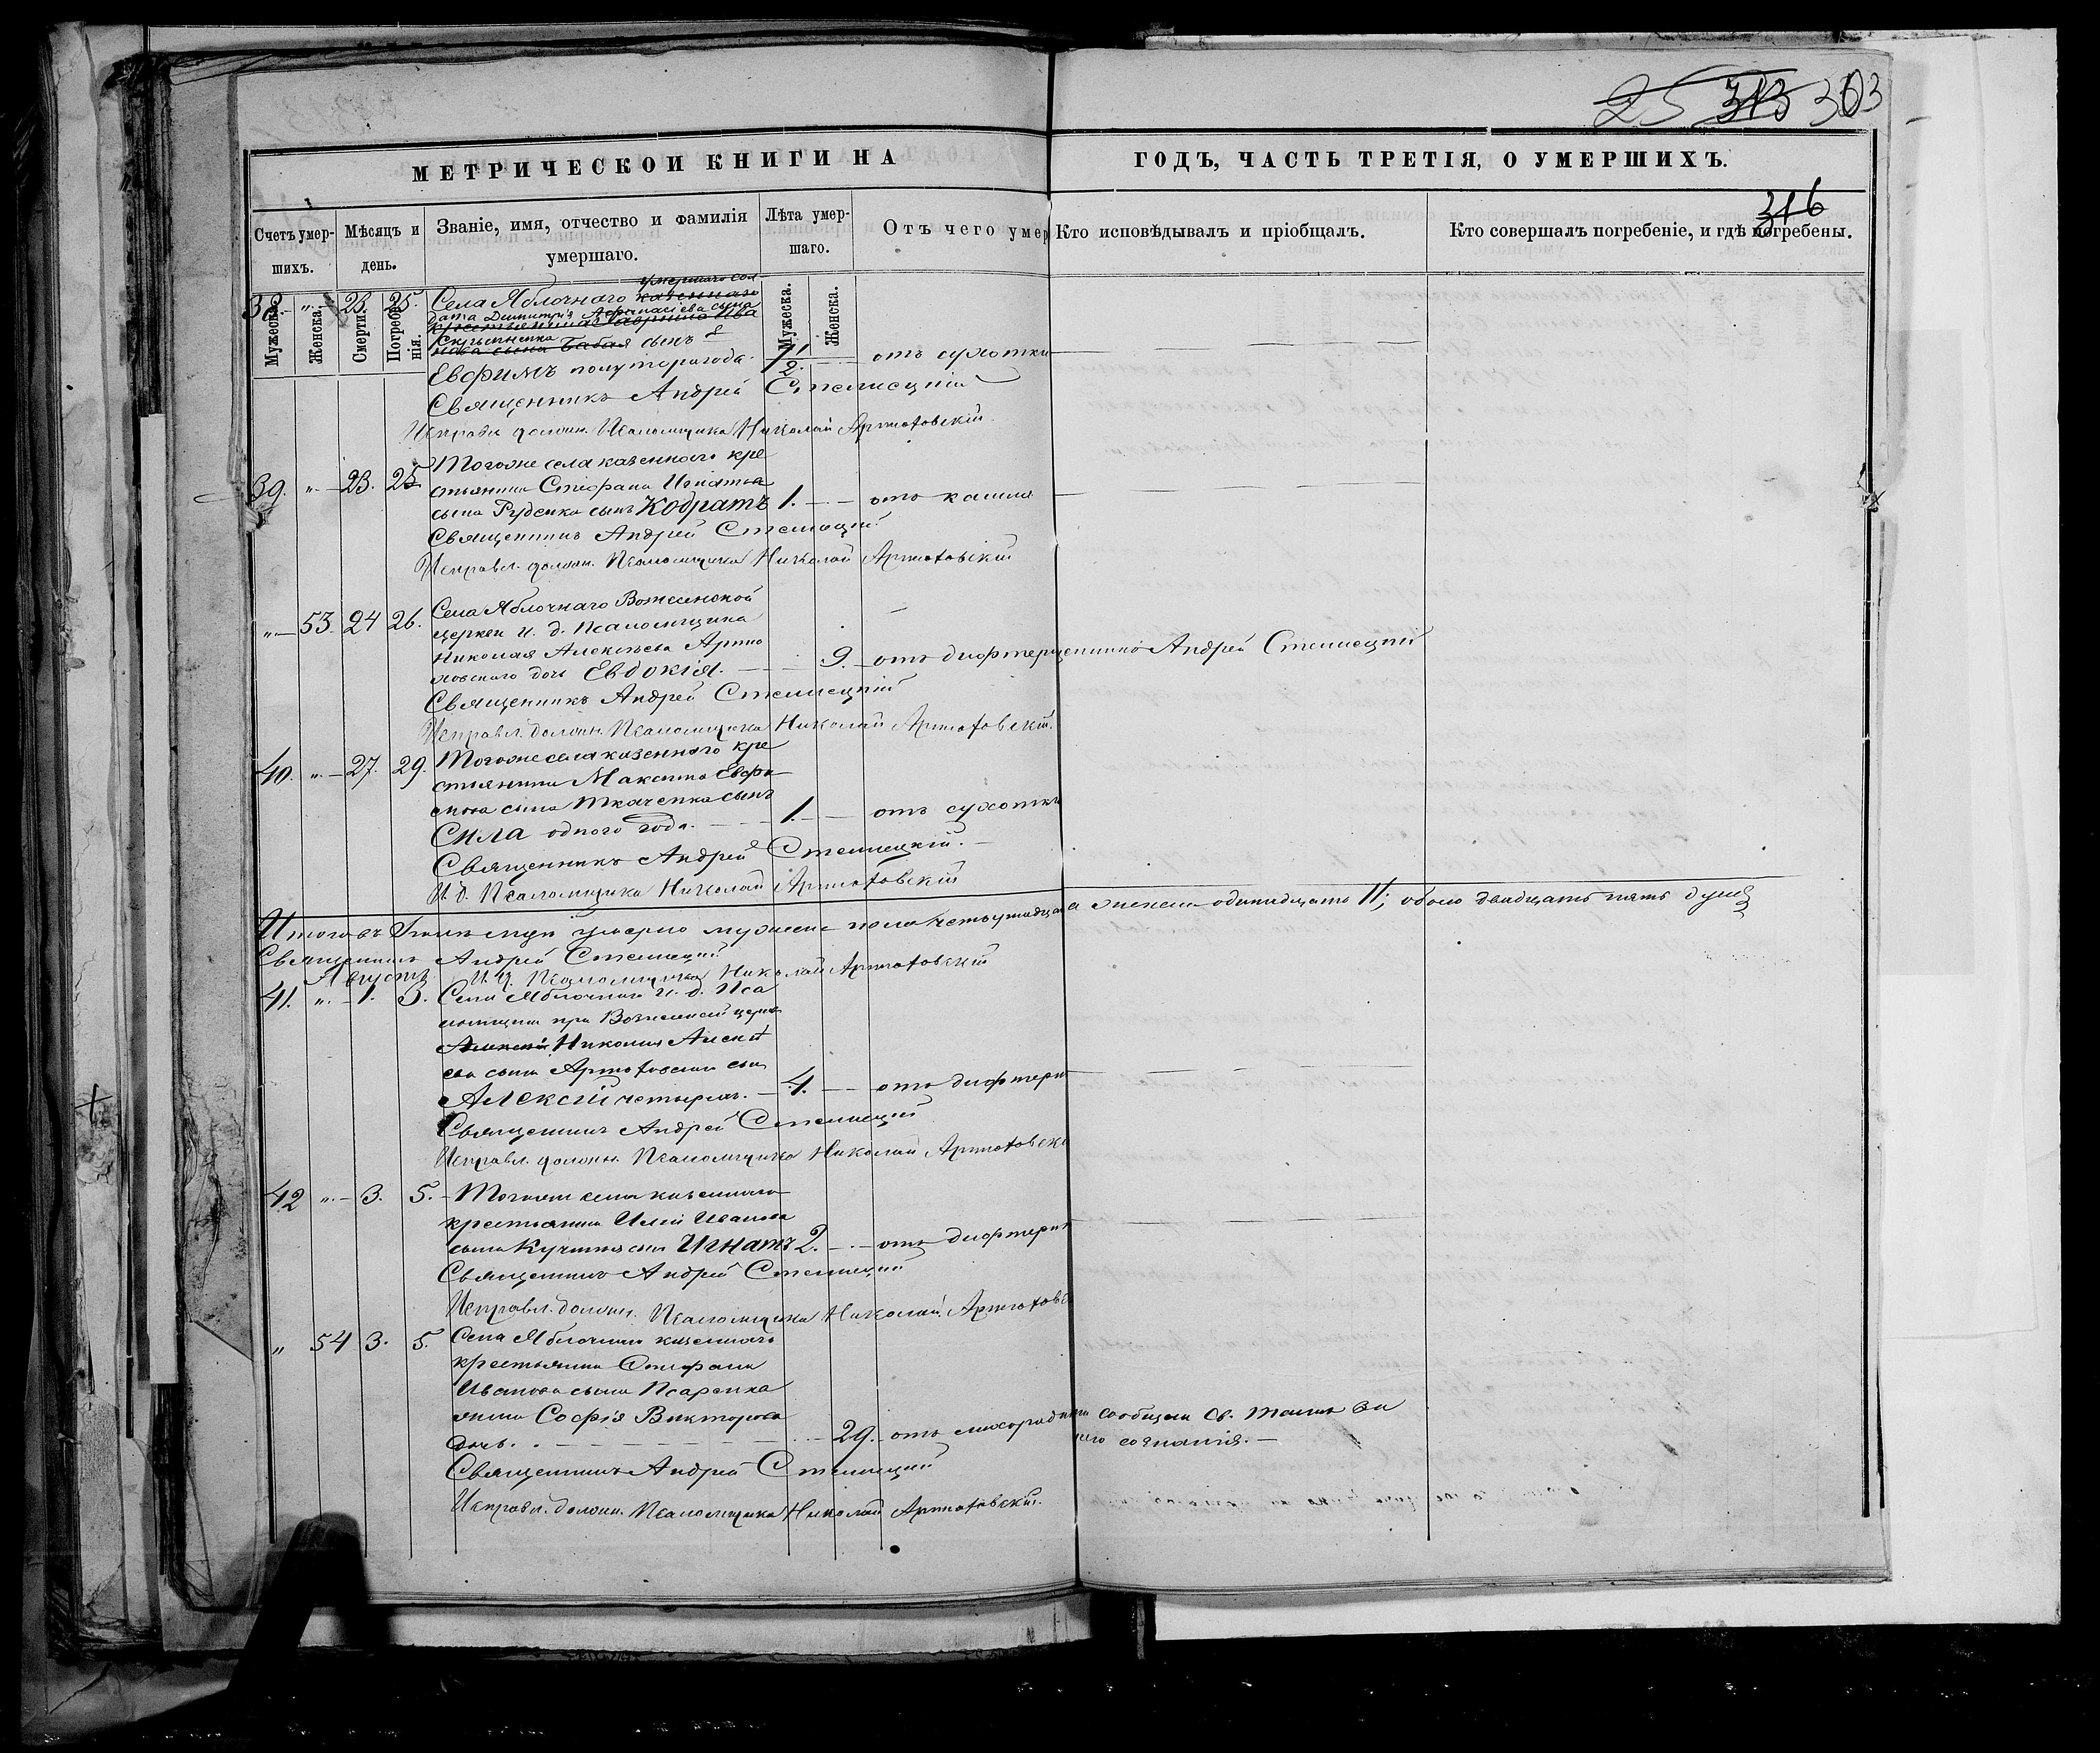 25 313 303
МЕТРИЧЕСКОЙ КНИГИ НА ГОДЪ, ЧАСТЬ ТРЕТІЯ, О УМЕРШИХЪ.
316
Счетъ умершихъ.
Мѣсяцъ и день.
Званіе, имя, отчество и фамилія умершаго.
Лѣта умершаго.
Отъ чего умер
Кто исповѣдывалъ и пріобщалъ.
Кто совершалъ погребеніе, и гдѣ погребены.
Мужеска. Женска. Смерти. Погребенія. Мужеска. Женска.
38. „ 23. 25. Села Яблочнаго казеннаго умершаго сол-
дата Димитрія Афанасіева сына
крестьянина Гавриила Ива
нова сына Бабая сынъ
Евфимъ полуторагода. 1 1/2 отъ сухотки
Священникъ Андрей Стеллецкій
Исправл. должн. Псаломщика Николай Артюховскій.
39. „ 23. 25 Тогоже села казеннаго кре
стьянина Стефана Игнатіева
сына Руденка сынъ Кодратъ 1. отъ кашля
Священникъ Андрей Стеллецкій
Исправл. должн. Псаломщика Николай Артюховскій
„ 53. 24 26. Села Яблочнаго Вознесенской
церкви и. д. Псаломщика
Николая Алексѣева Артю
ховскаго дочь Евдокія. 9. отъ дифтер
щенникъ Андрей Стеллецкій
Священникъ Андрей Стеллецкій
Исправл. должн. Псаломщика Николай Артюховскій.
40. „ 27. 29. Тогоже села казеннаго кре
стьянина Максима Евфи
мова сына Ткаченка сынъ
Сила одного года. 1. отъ сухотки
Священникъ Андрей Стеллецкій.
И. д. Псаломщика Николай Артюховскій
Итого въ Іюлѣ м-цѣ умерло мужеска пола четырнадца а женска одинадцать 11; обоего двадцать пять душъ
Священникъ Андрей Стеллецкій
Августъ И. д. Псаломщика Николай Артюховскій
41. „ 1. 3. Села Яблочнаго и. д. Пса
ломщика при Вознесенской церкви
Алексѣй Николая Алексѣ
ева сына Артюховскаго сынъ
Алексій четырехъ. 4. отъ дифтерит
Священникъ Андрей Стеллецкій
Исправл. должн. Псаломщика Николай Артюховскі
42 „ 3. 5. Тогоже села казеннаго
крестьянина Иліи Иванова
сына сынъ Игнатъ 2. отъ дифтерит
Священникъ Андрей Стеллецкій
Исправл. должн. Псаломщика Николай Артюховс
„ 54 3. 5. Села Яблочнаго казеннаго
крестьянина Стефана
Иванова сына Псаренка
жена Софія Викторова
дочь. 29. отъ лихорадки
сообщен св. таинъ
сознанія.
Священникъ Андрей Стеллецкій
Исправл. должн. Псаломщика Николай Артюховскій.